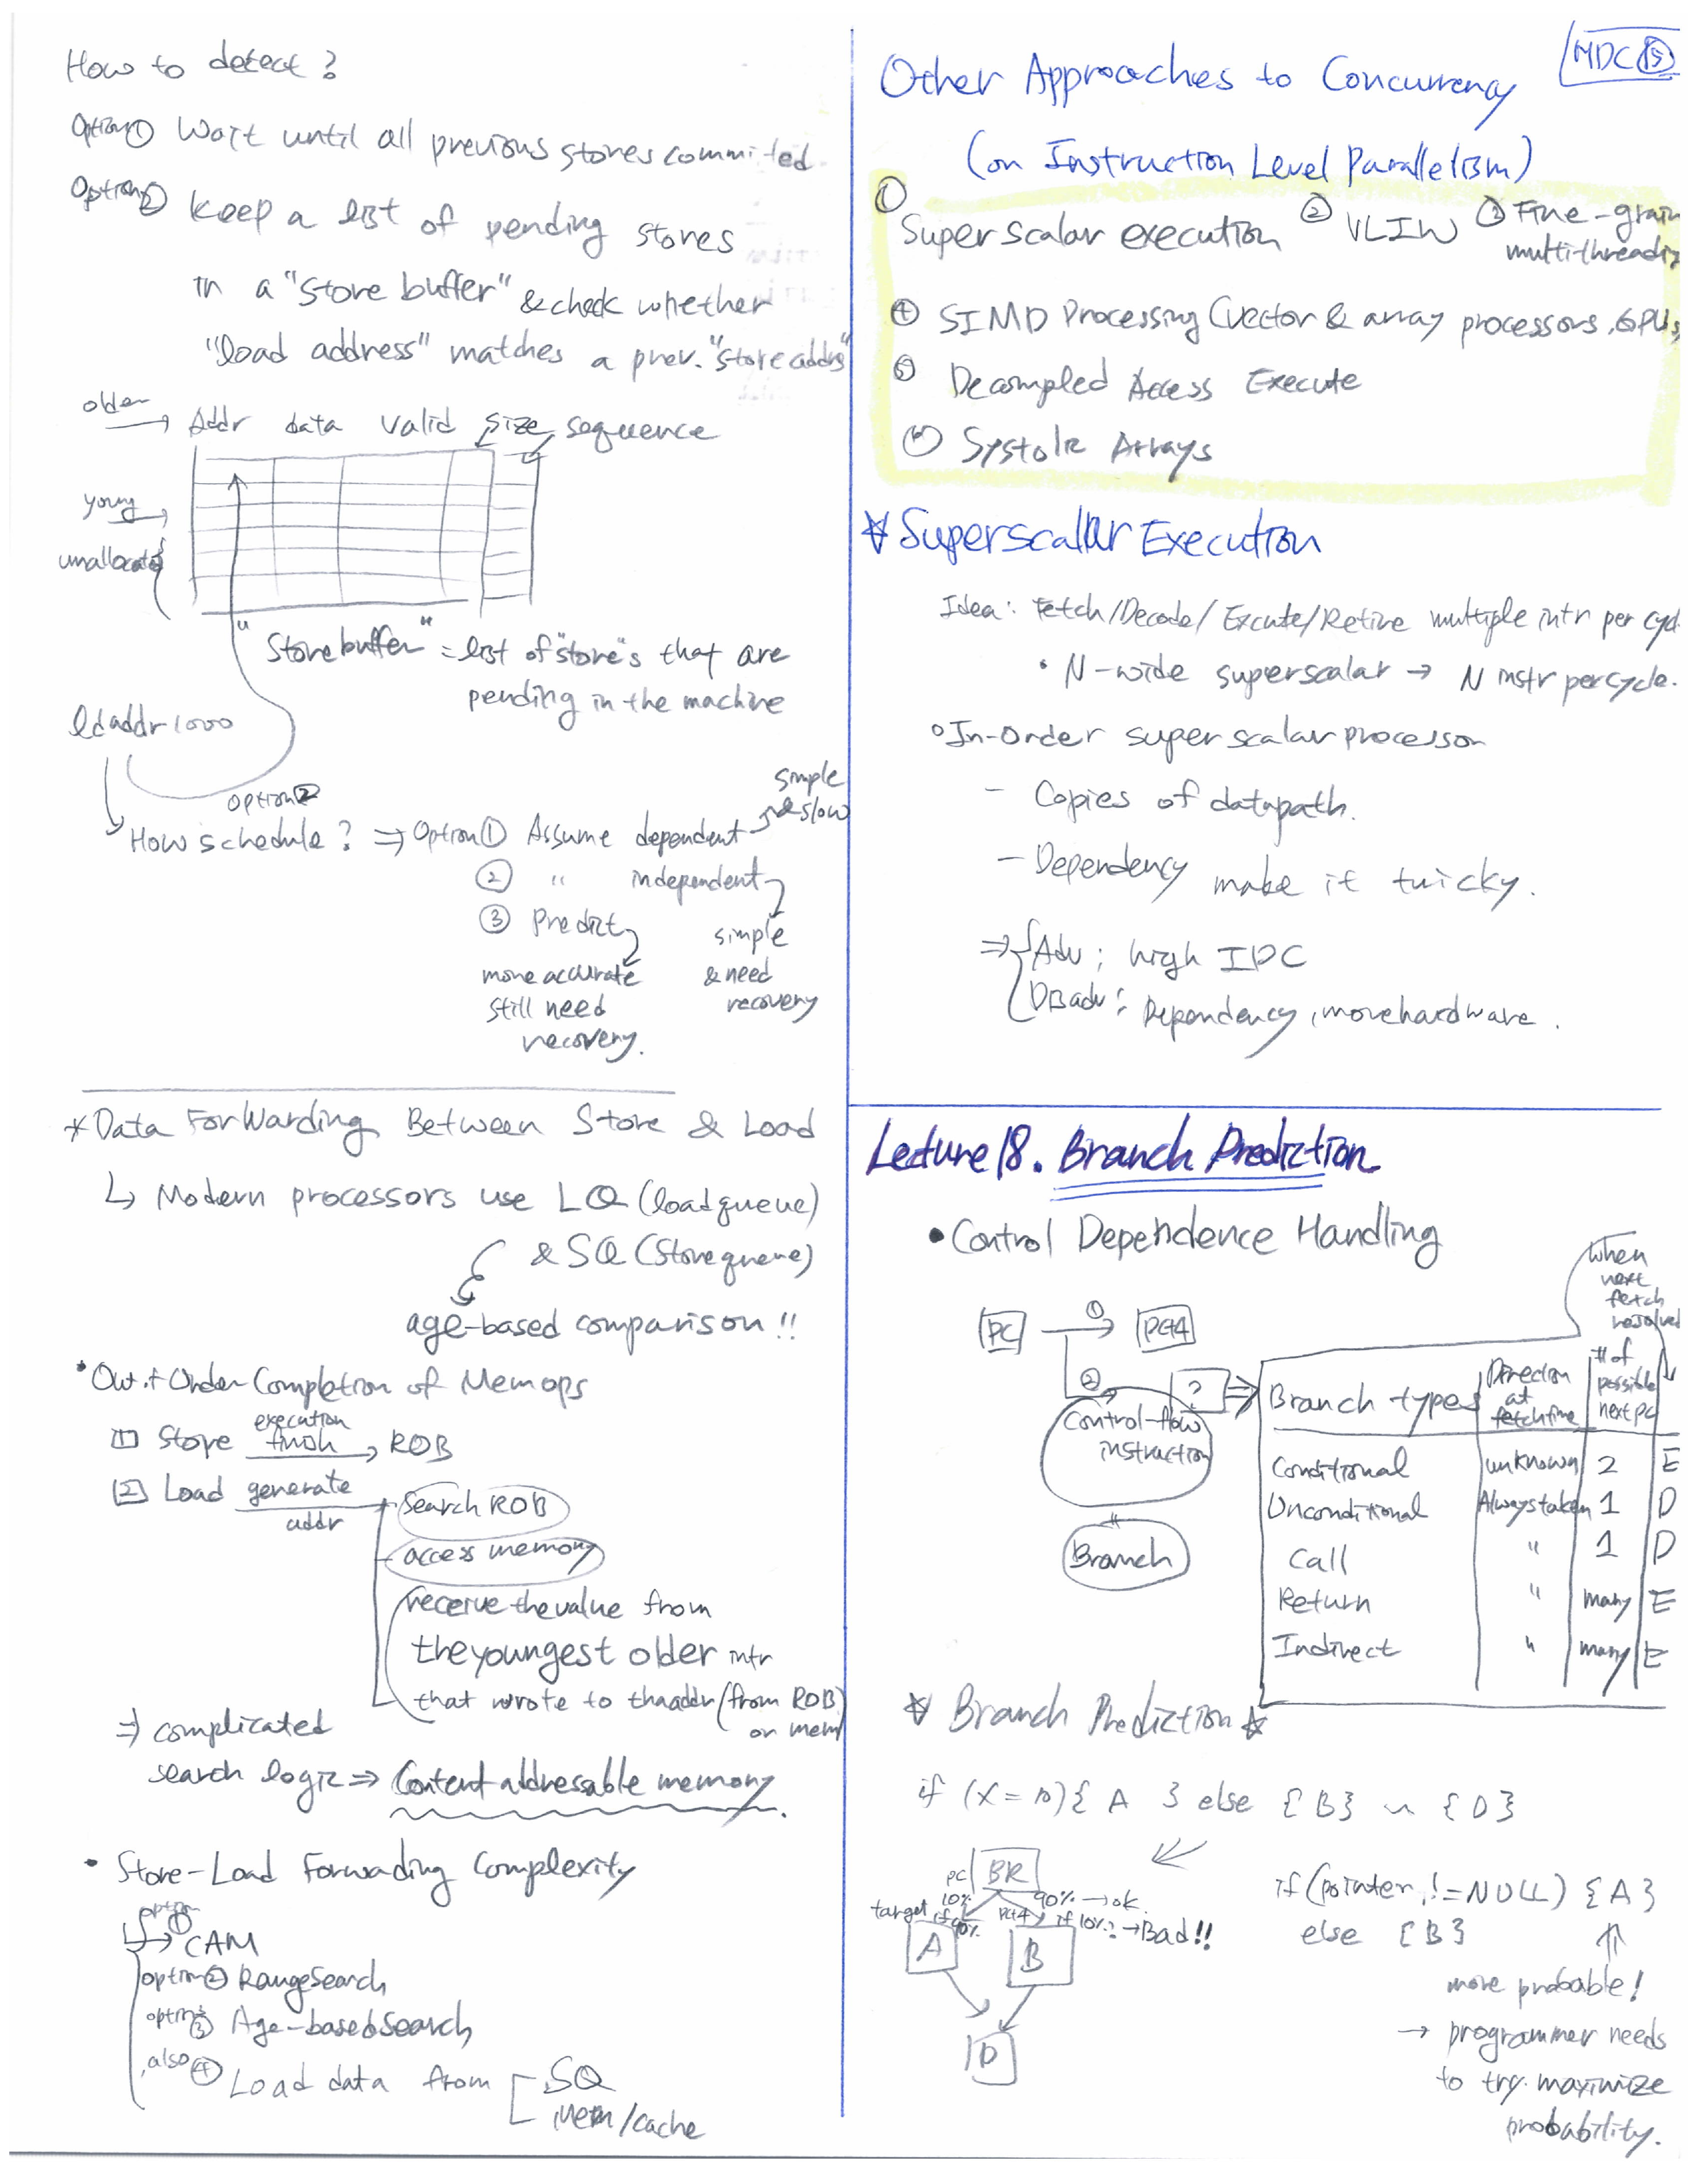 How to detect?
Option① Wait until all previous stores commited
Option② keep a list of pending stores
in a "store buffer" & check whether
"load address" matches a prev. "store addrs"
older → Addr data valid size sequence
young →
unallocated
"Store buffer" = list of "store"s that are
pending in the machine
ld addr 1000
option②
How schedule? ⇒ Option① Assume dependent → simple & slow
② " independent
③ Predict
simple
& need
recovery
more accurate
still need
recovery.
*Data Forwarding Between Store & Load
↳ Modern processors use LQ (load queue)
& SQ (Store queue)
age-based comparison!!
• Out of Order Completion of Mem ops
① Store execution finish → ROB
② Load generate addr
Search ROB
access memory
receive the value from
the youngest older intr
that wrote to tha addr (from ROB)
or mem
⇒ complicated
search logic ⇒ Content addressable memory.
• Store-Load Forwading Complexity
option
① → CAM
option② Range Search
option③ Age-based Search
also④ Load data from SQ
Mem/cache
MDC⑮
Other Approaches to Concurrency
(on Instruction Level Parallelism)
① Super scalar execution ② VLIW ③ Fine-grain
multithreading
④ SIMD Processing (Vector & array processors, GPUs
⑤ Decompled Access Execute
⑥ Systolic Arrays
☆ Superscallar Execution
Idea: Fetch/Decode/Excute/Retire multiple intr per cycl
• N-wide superscalar → N instr per cycle.
• In-Order super scalar processor
- Copies of datapath.
- Dependency make it tricky.
⇒ Adv; high IPC
Disadv; Dependency, more hardware.
Lecture 18. Branch Prediction
• Control Dependence Handling
when
next
fetch
resolved
PC ① → PC+4
② ? ⇒
Control-flow
instruction
"
Branch
Branch types | Direction at fetch time | # of possible next pc
Conditional | unknown | 2 | E
Unconditional | Always taken | 1 | D
Call | " | 1 | D
Return | " | many | E
Indirect | " | many | E
☆ Branch Prediction ☆
if (X = 10) { A } else { B } ~ { D }
pc BR
10% 90% → ok
target if 90% PC+4 if 10% → Bad!!
A B
D
if (pointer != NULL) {A}
else {B} ⇑
more probable!
→ programmer needs
to try. maximize
probability.